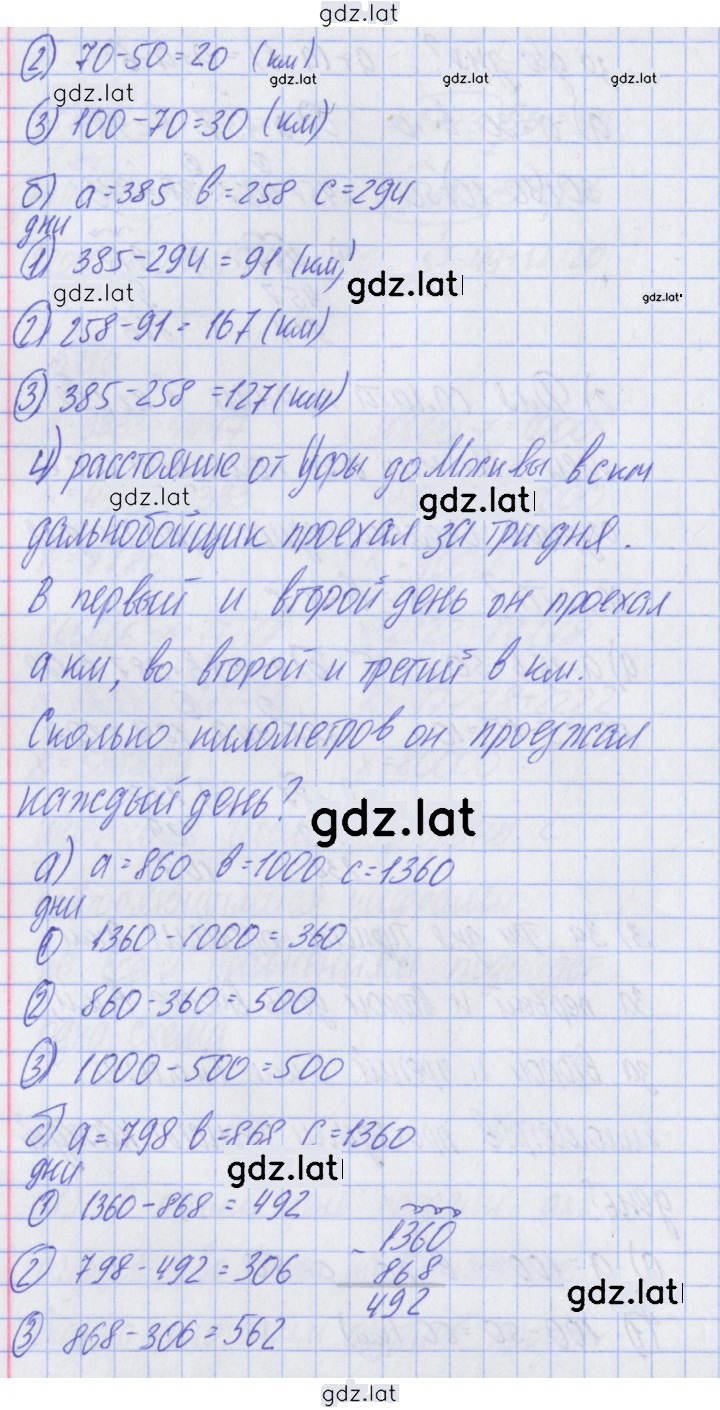 gdz.lat
2) 70-50=20 (км)
gdz.lat gdz.lat gdz.lat
gdz.lat
3) 100-70=30 (км)
б) а=385 в=258 с=294
дни
1) 385-294=91 (км)
gdz.lat gdz.lat gdz.lat
2) 258-91=167(км)
3) 385-258=127(км)
4) расстояние от Уфы до Москвы в с км
gdz.lat gdz.lat
дальнобойщик проехал за три дня.
В первый и второй день он проехал
а км, во второй и третий в км.
Сколько километров он проезжал
каждый день?
gdz.lat
а) а=860 в=1000 с=1360
дни
1) 1360-1000=360
2) 860-360=500
3) 1000-500=500
б) а=798 в=868 с=1360
дни gdz.lat
1) 1360-868=492
- 1360
868
492
2) 798-492=306
gdz.lat
3) 868-306=562
gdz.lat